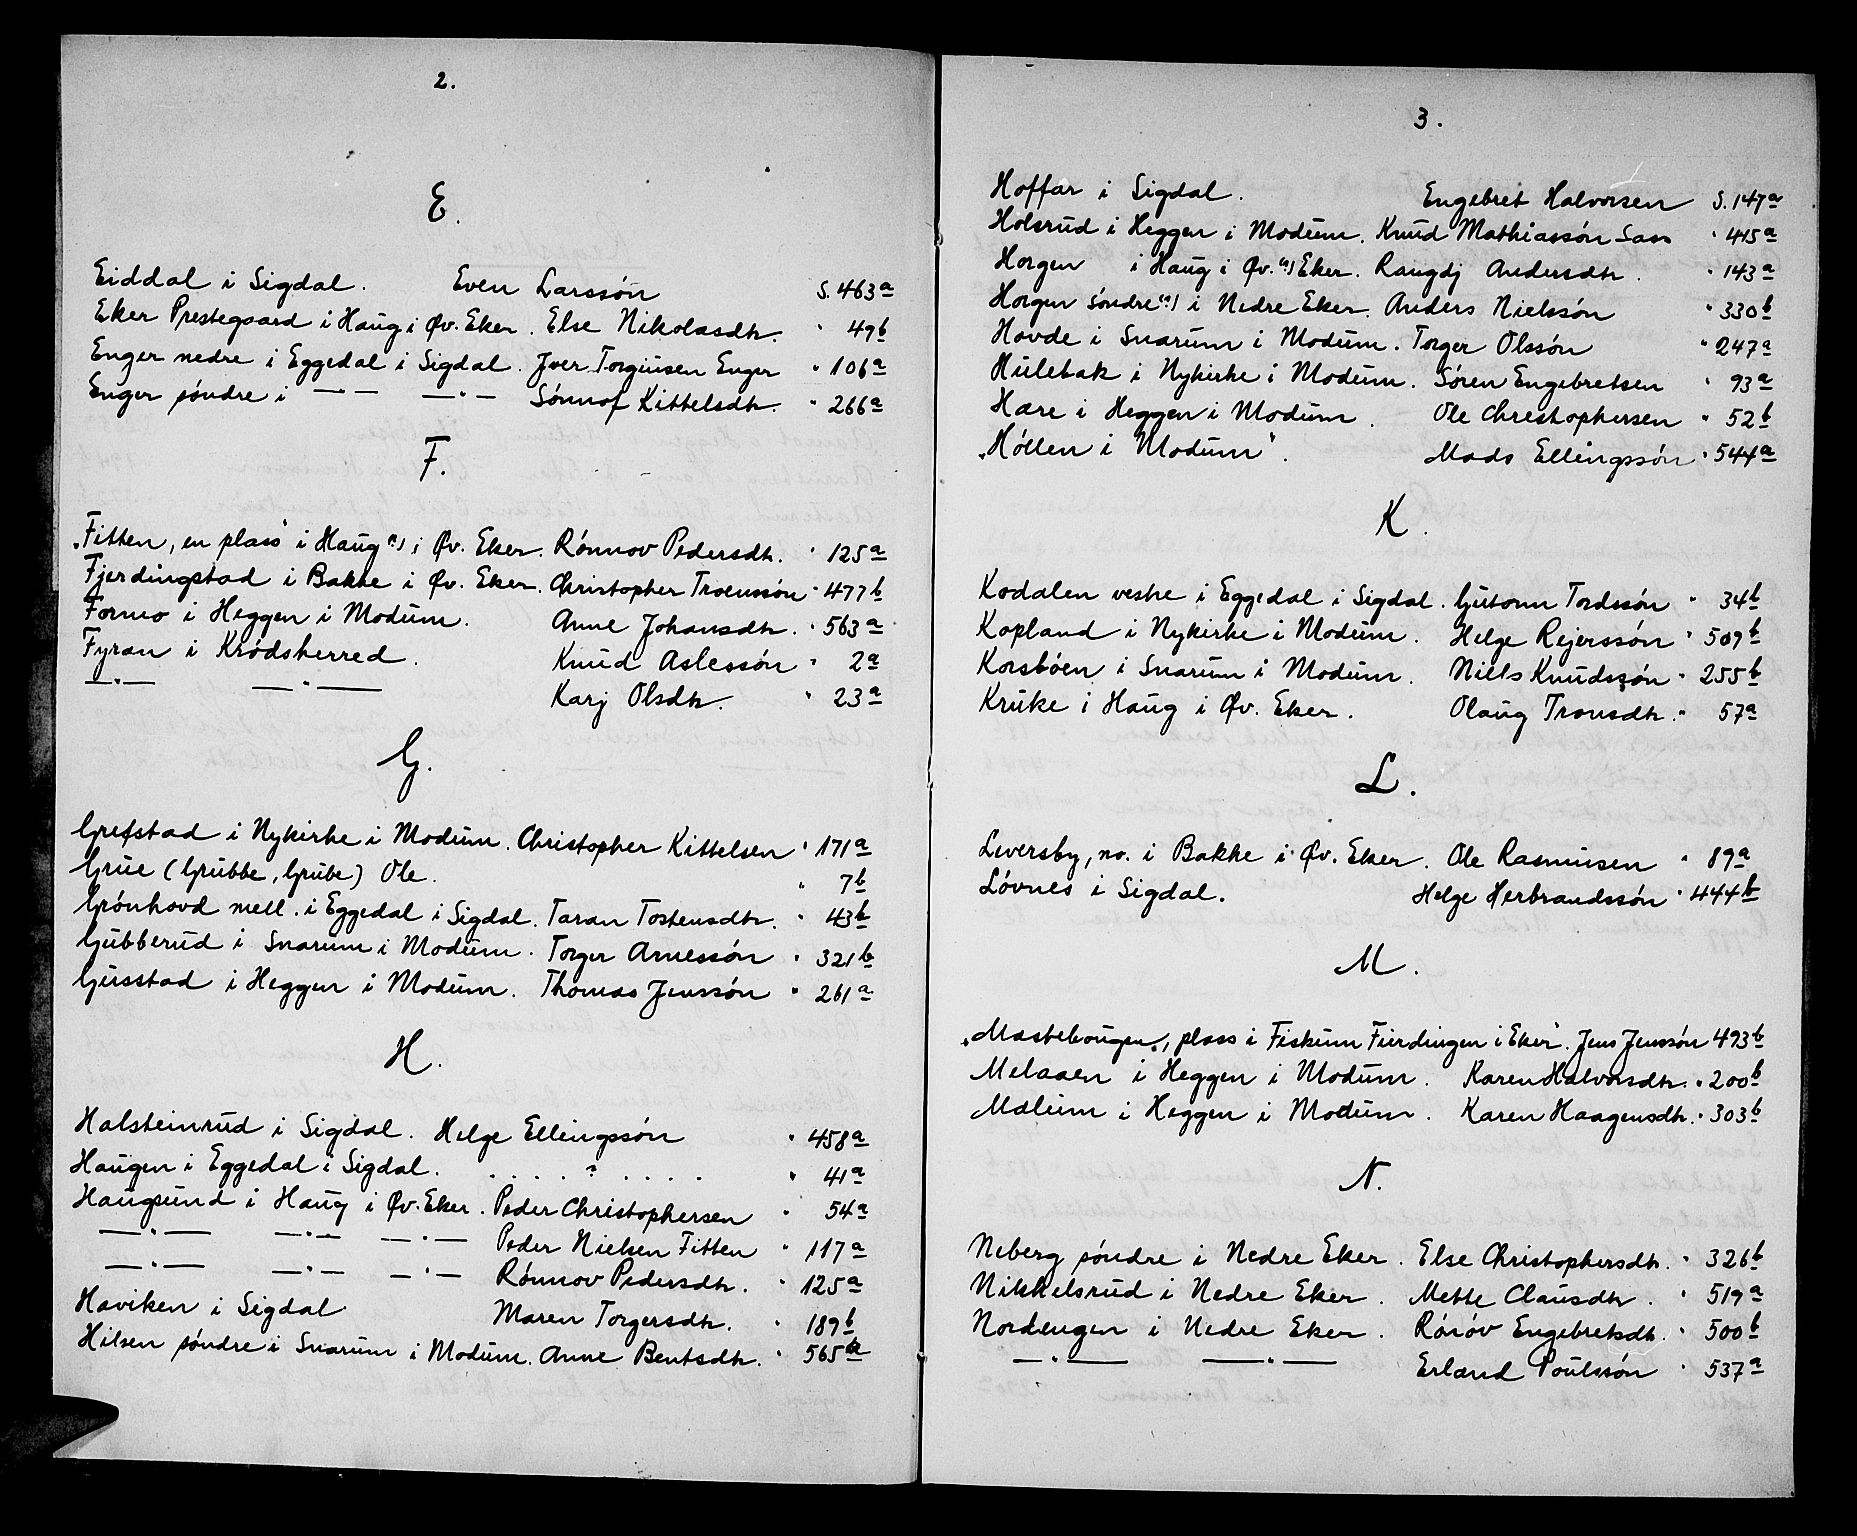 2.
E.
Eiddal i Sigdal. Even Larssón S. 463a
Eker Prestegaard i Haug i Øv. Eker. Else Nikolasdtr. " 49b
Enger nedre i Eggedal i Sigdal. Jver Torgiusen Enger " 106a
Enger søndre i —"— —"— Sønnof Kittelsdtr. " 266a
F.
„Fitten, en plass" i Haug a) i Øv. Eker. Rónnov Pedersdtr. " 125a
Fjerdingstad i Bakke i Øv. Eker. Christopher Troenssón " 477b
Formo i Heggen i Modum. Anne Johansdtr. " 563a
Fyran i Krødsherred. Knud Aslessón " 2a
—"— —"— Karj Olsdtr. " 23a
G.
Grefstad i Nykirke i Modum. Christopher Kittelsen " 171a
Grue (Grubbe, Grube) Ole. " 7b
Grónhovd mell. i Eggedal i Sigdal. Taran Tostensdtr. " 43b
Gubberud i Snarum i Modum. Torger Arnessón " 321b
Gusstad i Heggen i Modum. Thomas Jenssón " 261a
H.
Halsteinrud i Sigdal. Helge Ellingssón " 458a
Haugen i Eggedal i Sigdal. . . . . ? . . . . " 41a
Haugsund i Haug i Øv. Eker. Peder Christophersen " 54a
—"— —"— —"— Peder Nielsen Fitten " 117a
—"— —"— —"— Rónnov Pedersdtr. " 125a
Haviken i Sigdal Maren Torgersdtr. " 189b
Hilsen søndre i Snarum i Modum. Anne Bentsdtr. " 565a
3.
Hoffar i Sigdal. Engebret Halvorsen S. 147a
Holsrud i Heggen i Modum. Knud Mathiassón Sass " 415a
Horgen i Haug i Øv. a) Eker. Rangdj Andersdtr. " 143a
Horgen søndre a) i Nedre Eker. Anders Nielssón " 330b
Hovde i Snarum i Modum. Torger Olssón " 247a
Hulebak i Nykirke i Modum. Søren Engebretsen " 93a
Hære i Heggen i Modum. Ole Christophersen " 52b
„Hóllen i Modum". Mads Ellingssón " 544a
K.
Kodalen vestre i Eggedal i Sigdal. Gutorm Tordssón " 34b
Kopland i Nykirke i Modum. Helge Rejerssón " 509b
Korsbóen i Snarum i Modum. Niels Knudssón " 255b
Kruke i Haug i Øv. Eker. Olaug Tronsdtr. " 57a
L.
Leversby, no. i Bakke i Øv. Eker. Ole Rasmusen " 89a
Lóvnes i Sigdal. Helge Herbrandssón " 444b
M.
„Mastebougen", plass i Fiskum Fierdingen i Eker". Jens Jenssón 493b
Melaaen i Heggen i Modum. Karen Halvorsdtr. " 200b
Mælum i Heggen i Modum. Karen Haagensdtr. " 303b
N.
Neberg søndre i Nedre Eker. Else Christophersdtr. " 326b
Nikkelsrud i Nedre Eker. Mette Clausdtr. " 519a
Nordengen i Nedre Eker. Rónóv Engebretsdtr. " 500b
—"— —"— Erland Poulssón " 537a